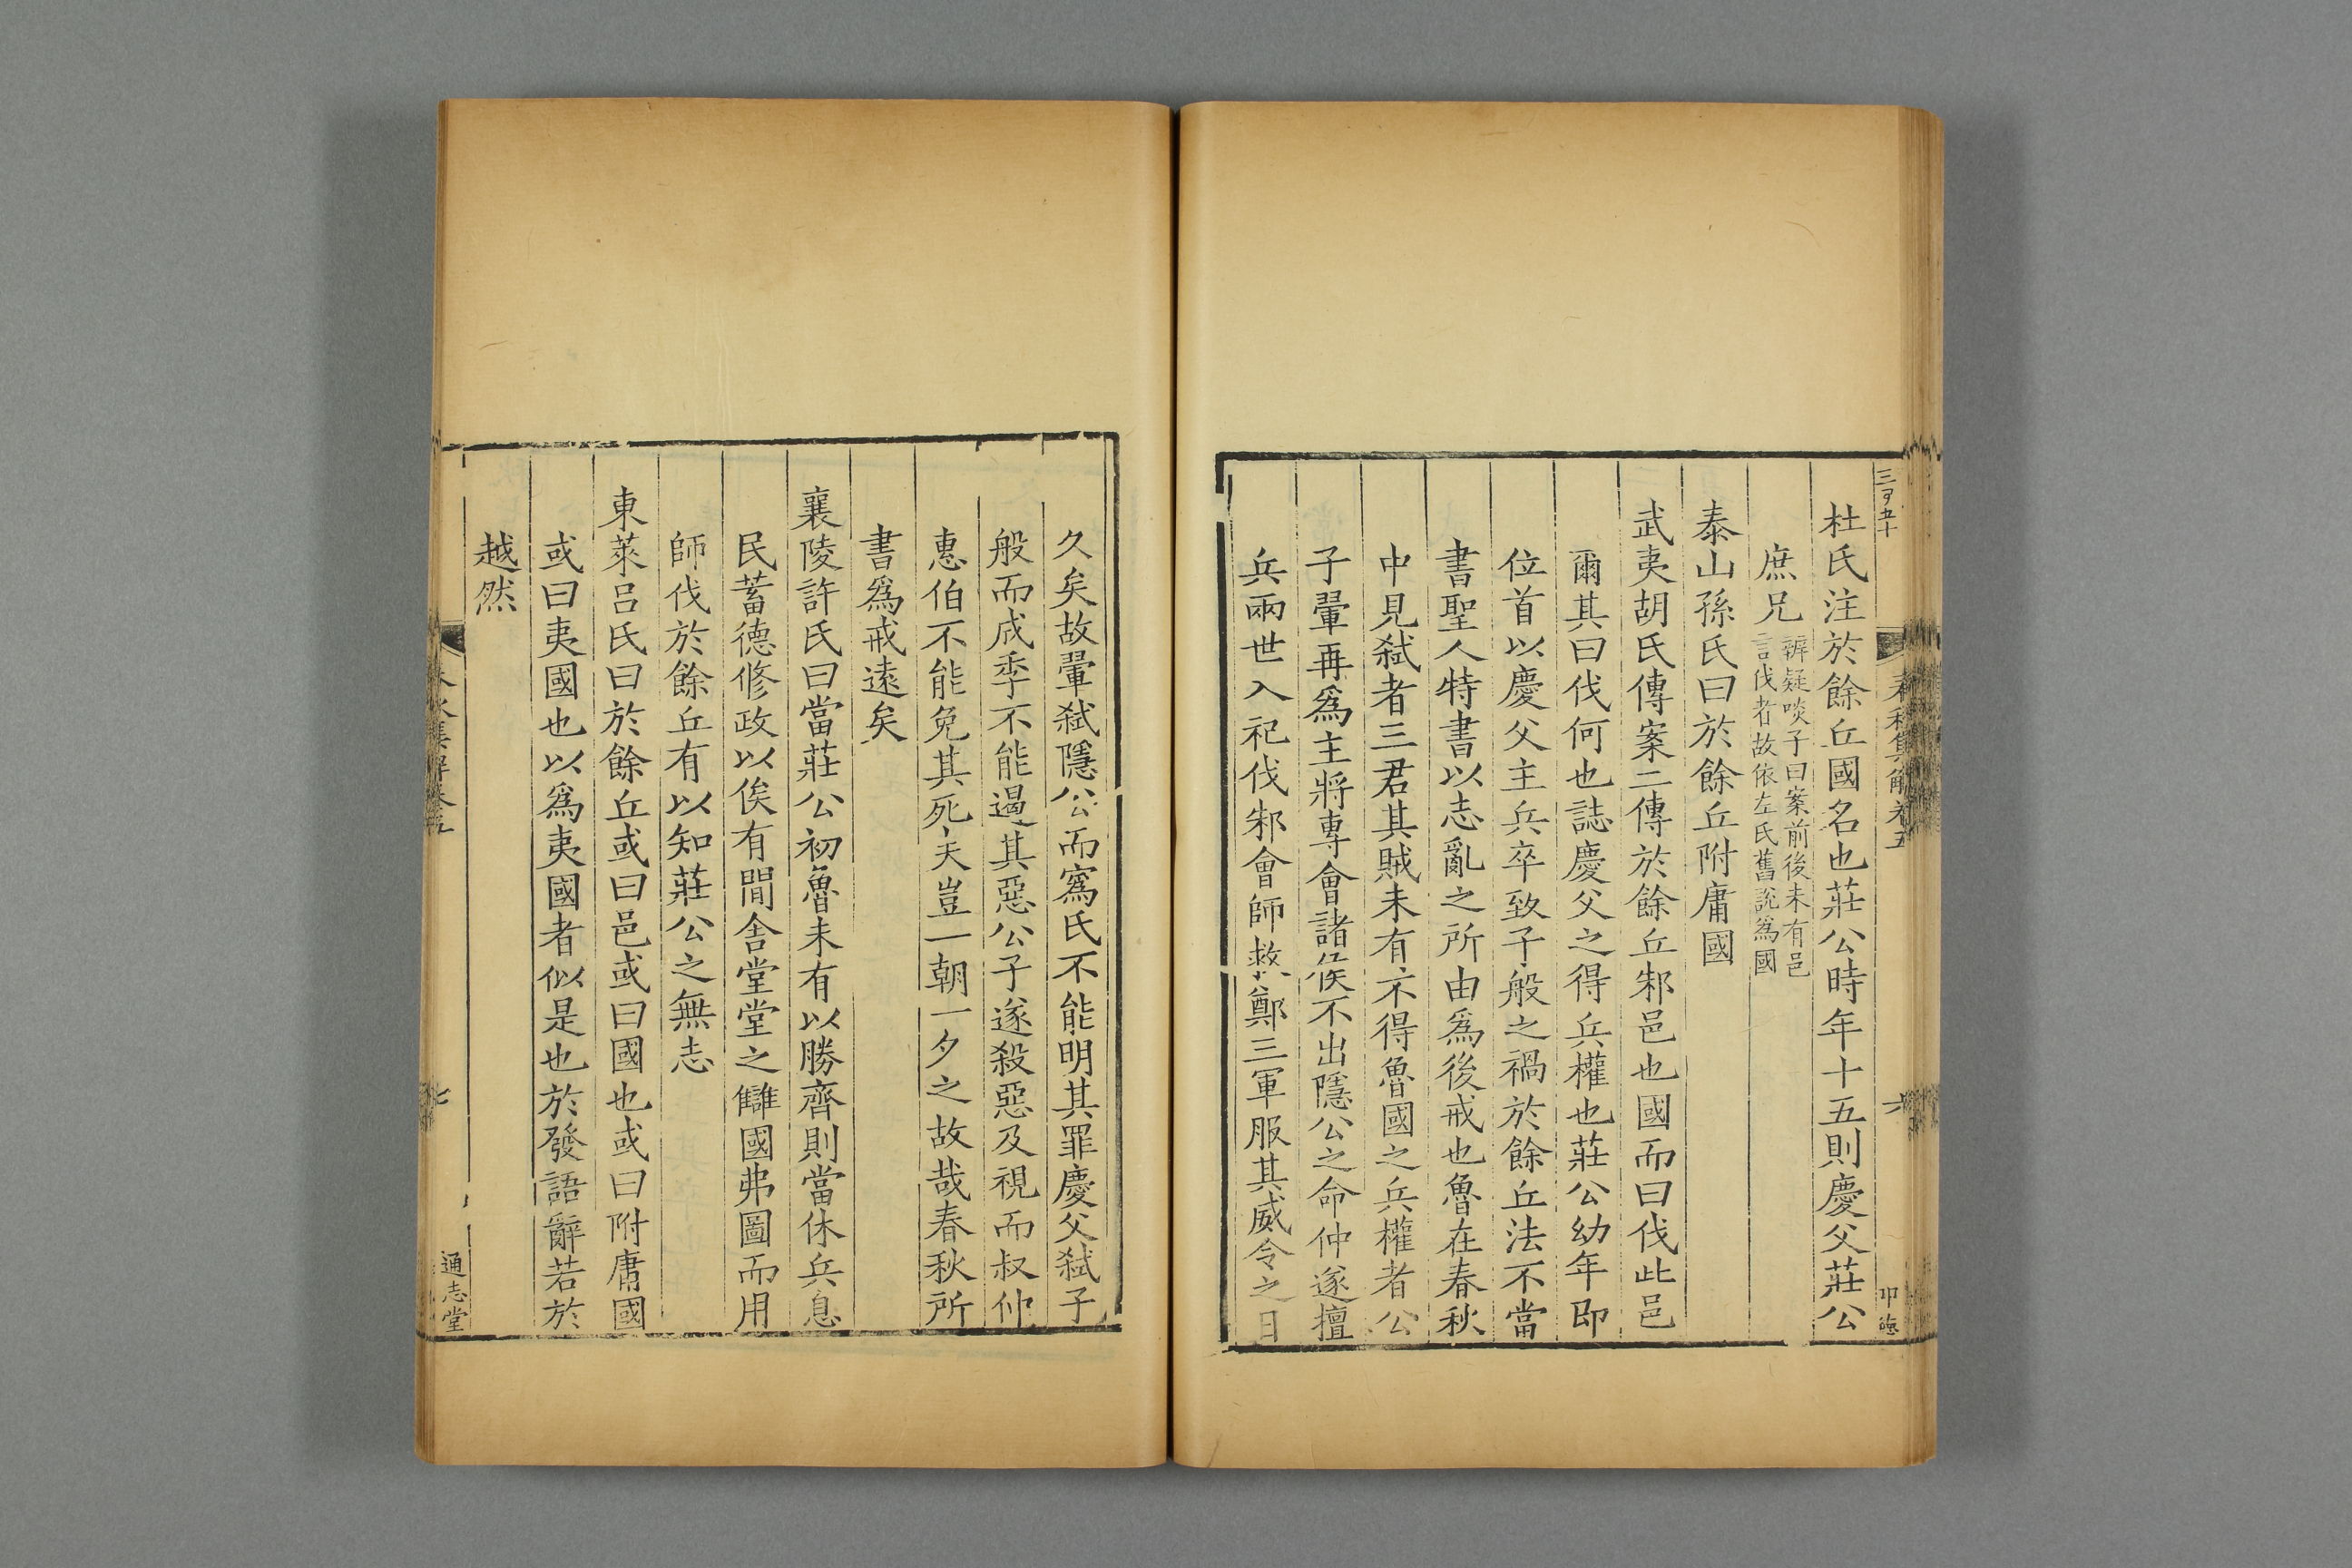 杜氏注於餘丘國名也莊公時年十五則慶父莊公
庶兄
辨疑啖子曰案前後未有邑
言伐者故依左氏舊說為國
泰山孫氏曰於餘丘附庸國
武夷胡氏傳案二傳於餘丘邾邑也國而曰伐此邑
爾其曰伐何也誌慶父之得兵權也莊公幼年即
位首以慶父主兵卒致子般之禍於餘丘法不當
書聖人特書以志亂之所由爲後戒也魯在春秋
中見弑者三君其賊未有不得魯國之兵權者公
子翬再爲主將專會諸侯不出隱公之命仲遂擅
兵兩世入祀伐邾會師救鄭三軍服其威令之日
春秋集解卷五
六
久矣故翬弑隱公而寪氏不能明其罪慶父弑子
般而成季不能遏其惡公子遂殺惡及視而叔仲
惠伯不能免其死夫豈一朝一夕之故哉春秋所
書爲戒遠矣
襄陵許氏曰當莊公初魯未有以勝齊則當休兵息
民蓄德修政以俟有閒舍堂堂之讎國弗圖而用
師伐於餘丘有以知莊公之無志
東萊呂氏曰於餘丘或曰邑或曰國也或曰附庸國
或曰夷國也以爲夷國者似是也於發語辭若於
越然
春秋集解卷五
七
通志堂